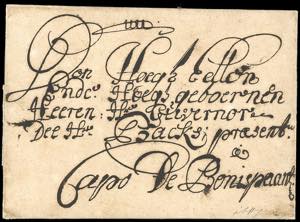 Den Hoog Edlen
Ende Hoog geboernen
Heeren Hr Guvernor
Dee Hr Backs present
a
Capo De Bonispeant